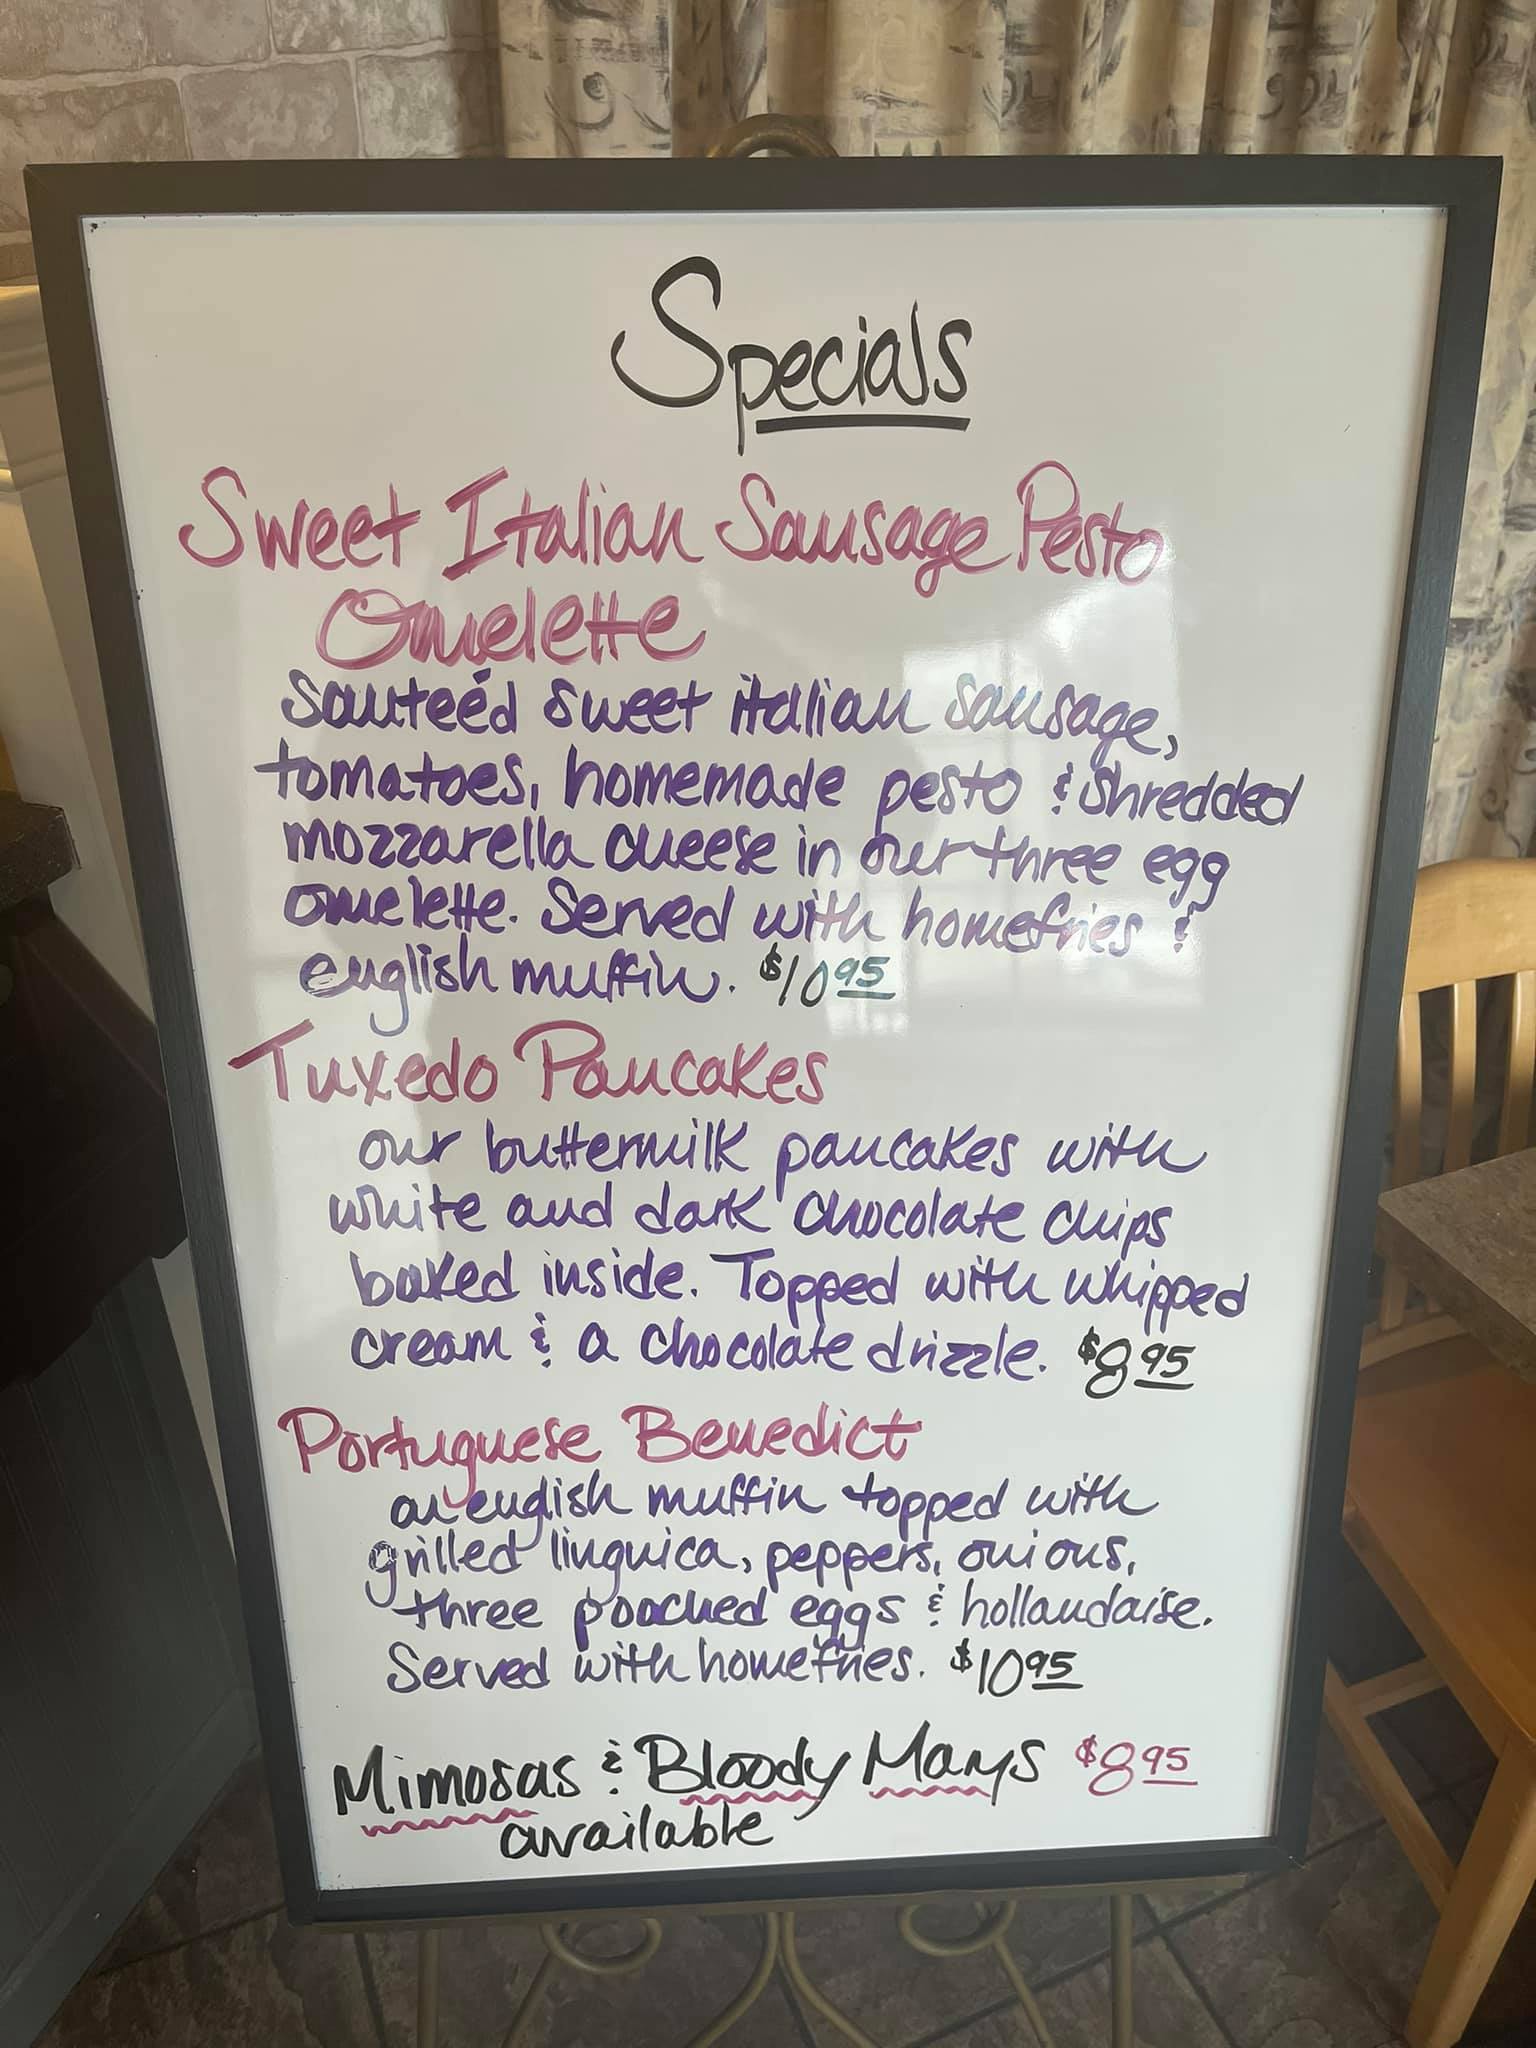 Specials
Sweet Italian Sausage Pesto
Omelette
Sauteéd sweet italian sausage,
tomatoes, homemade pesto & shredded
mozzarella cheese in our three egg
omelette. Served with homefries &
english muffin. $10.95
Tuxedo Pancakes
our buttermilk pancakes with
white and dark chocolate chips
baked inside. Topped with whipped
cream & a chocolate drizzle. $8.95
Portuguese Benedict
an english muffin topped with
grilled linguica, peppers, onions,
three poached eggs & hollandaise.
Served with homefries. $10.95
Mimosas & Bloody Marys $8.95
available